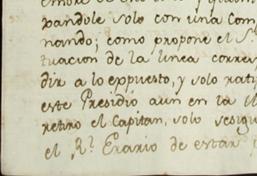 pandole solo con una Com
nando; como propone el S.
tuacion de la linea corres
dir a lo expuesto, y solo rati
este Presidio aun en la
retiro el Capitan, solo sesig
el R.l Erario de estar